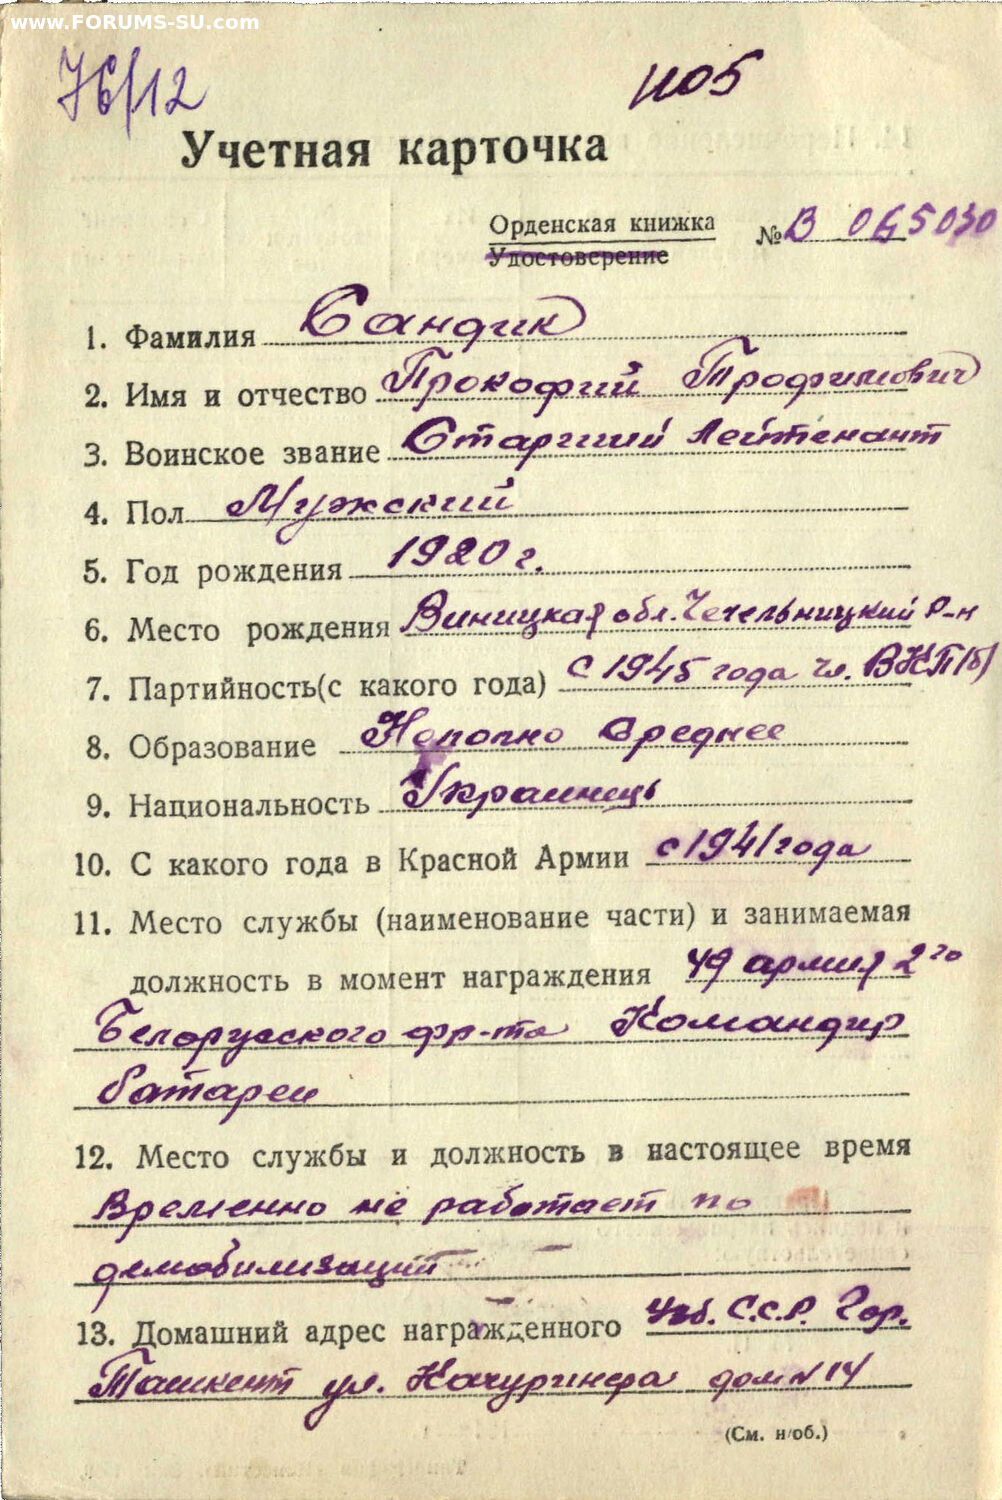 www.FORUMS-SU.com
76/12
1105
Учетная карточка
Орденская книжка № В 065030
Удостоверение
1. Фамилия Сандик
2. Имя и отчество Прокофий Трофимович
3. Воинское звание Старший Лейтенант
4. Пол Мужский
5. Год рождения 1920 г.
6. Место рождения Виницкая обл. Чечельницкий р-н
7. Партийность (с какого года) с 1945 года чл. ВКП(б)
8. Образование Неполно Среднее
9. Национальность Украинець
10. С какого года в Красной Армии с 1941 года
11. Место службы (наименование части) и занимаемая
должность в момент награждения 49 армия 2го
Белорусского фр-та Командир
батареи
12. Место службы и должность в настоящее время
Временно не работает по
демобилизации
13. Домашний адрес награжденного Узб. С.С.Р. Гор.
Ташкент ул. дом N 14
(См. н/об.)